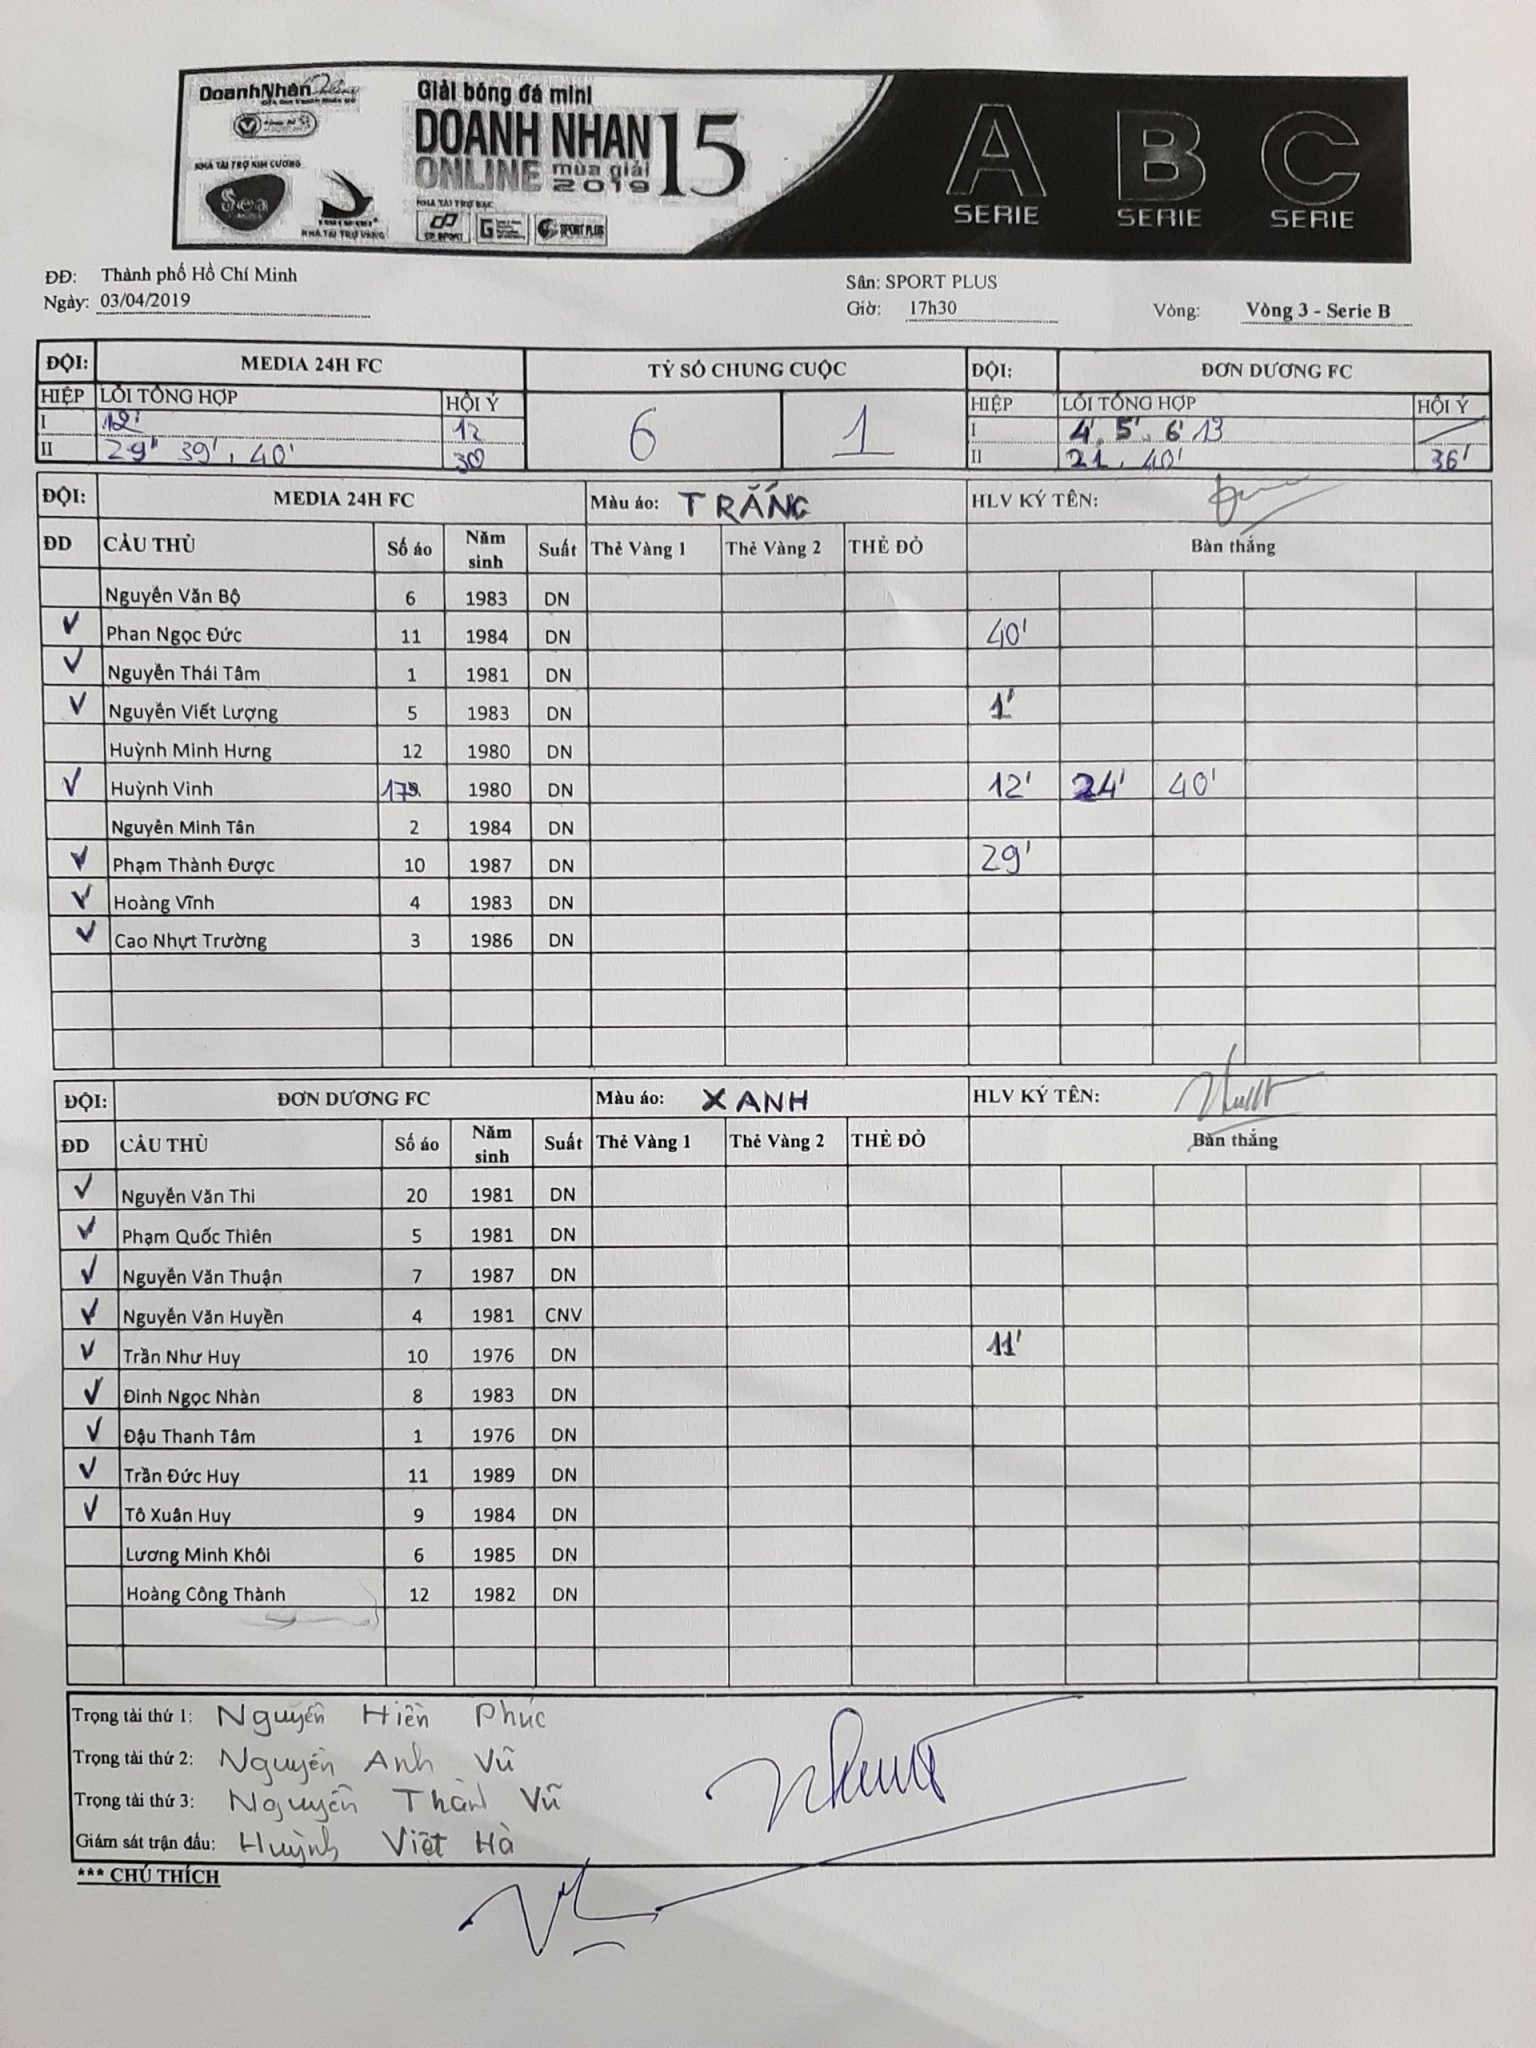 DoanhNhân Online
Giải bóng đá mini
DOANH NHAN 15
ONLINE mùa giải
2019
NHÀ TÀI TRỢ KIM CƯƠNG
Sea
NHÀ TÀI TRỢ VÀNG
NHÀ TÀI TRỢ BẠC
CP SPORT
SPORT PLUS
A B C
SERIE SERIE SERIE
ĐĐ: Thành phố Hồ Chí Minh Sân: SPORT PLUS
Ngày: 03/04/2019 Giờ: 17h30 Vòng: Vòng 3 - Serie B
ĐỘI: MEDIA 24H FC TỶ SỐ CHUNG CUỘC ĐỘI: ĐƠN DƯƠNG FC
HIỆP LỖI TỔNG HỢP HỘI Ý 6 1 HIỆP LỖI TỔNG HỢP HỘI Ý
I 12' 12 I 4', 5', 6' 13
II 29' 39', 40' 30 II 21, 40' 36'
ĐỘI: MEDIA 24H FC Màu áo: TRẮNG HLV KÝ TÊN:
ĐD CẦU THỦ Số áo Năm sinh Suất Thẻ Vàng 1 Thẻ Vàng 2 THẺ ĐỎ Bàn thắng
Nguyễn Văn Bộ 6 1983 DN
✓ Phan Ngọc Đức 11 1984 DN 40'
✓ Nguyễn Thái Tâm 1 1981 DN
✓ Nguyễn Viết Lượng 5 1983 DN 1'
Huỳnh Minh Hưng 12 1980 DN
✓ Huỳnh Vinh 1980 DN 12' 24' 40'
Nguyễn Minh Tân 2 1984 DN
✓ Phạm Thành Được 10 1987 DN 29'
✓ Hoàng Vĩnh 4 1983 DN
✓ Cao Nhựt Trường 3 1986 DN
ĐỘI: ĐƠN DƯƠNG FC Màu áo: XANH HLV KÝ TÊN:
ĐD CẦU THỦ Số áo Năm sinh Suất Thẻ Vàng 1 Thẻ Vàng 2 THẺ ĐỎ Bàn thắng
✓ Nguyễn Văn Thi 20 1981 DN
✓ Phạm Quốc Thiên 5 1981 DN
✓ Nguyễn Văn Thuận 7 1987 DN
✓ Nguyễn Văn Huyền 4 1981 CNV
✓ Trần Như Huy 10 1976 DN 11'
✓ Đinh Ngọc Nhàn 8 1983 DN
✓ Đậu Thanh Tâm 1 1976 DN
✓ Trần Đức Huy 11 1989 DN
✓ Tô Xuân Huy 9 1984 DN
Lương Minh Khôi 6 1985 DN
Hoàng Công Thành 12 1982 DN
Trọng tài thứ 1: Nguyễn Hiền Phúc
Trọng tài thứ 2: Nguyễn Anh Vũ
Trọng tài thứ 3: Nguyễn Thành Vũ
Giám sát trận đấu: Huỳnh Việt Hà
*** CHÚ THÍCH